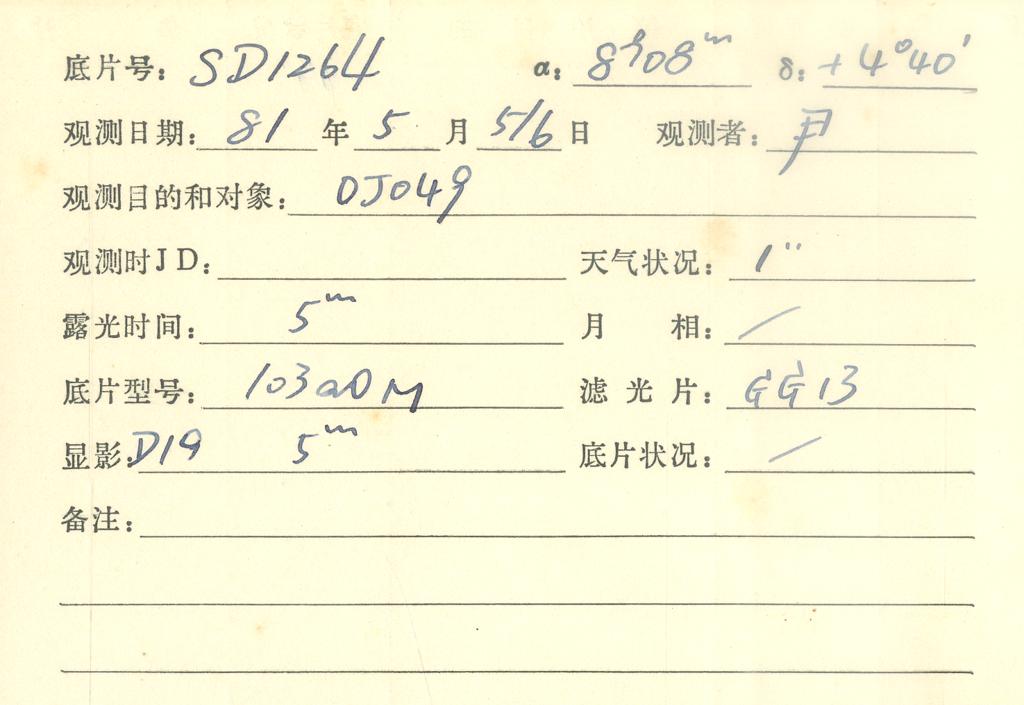 底片号: SD1264 α: 8h08m δ: +4°40′
观测日期: 81 年 5 月 5/6 日 观测者: 尹
观测目的和对象: OJ049
观测时JD: 天气状况: 1″
露光时间: 5m 月 相: /
底片型号: 103aO M 滤光片: GG13
显影: D19 5m 底片状况: /
备注: